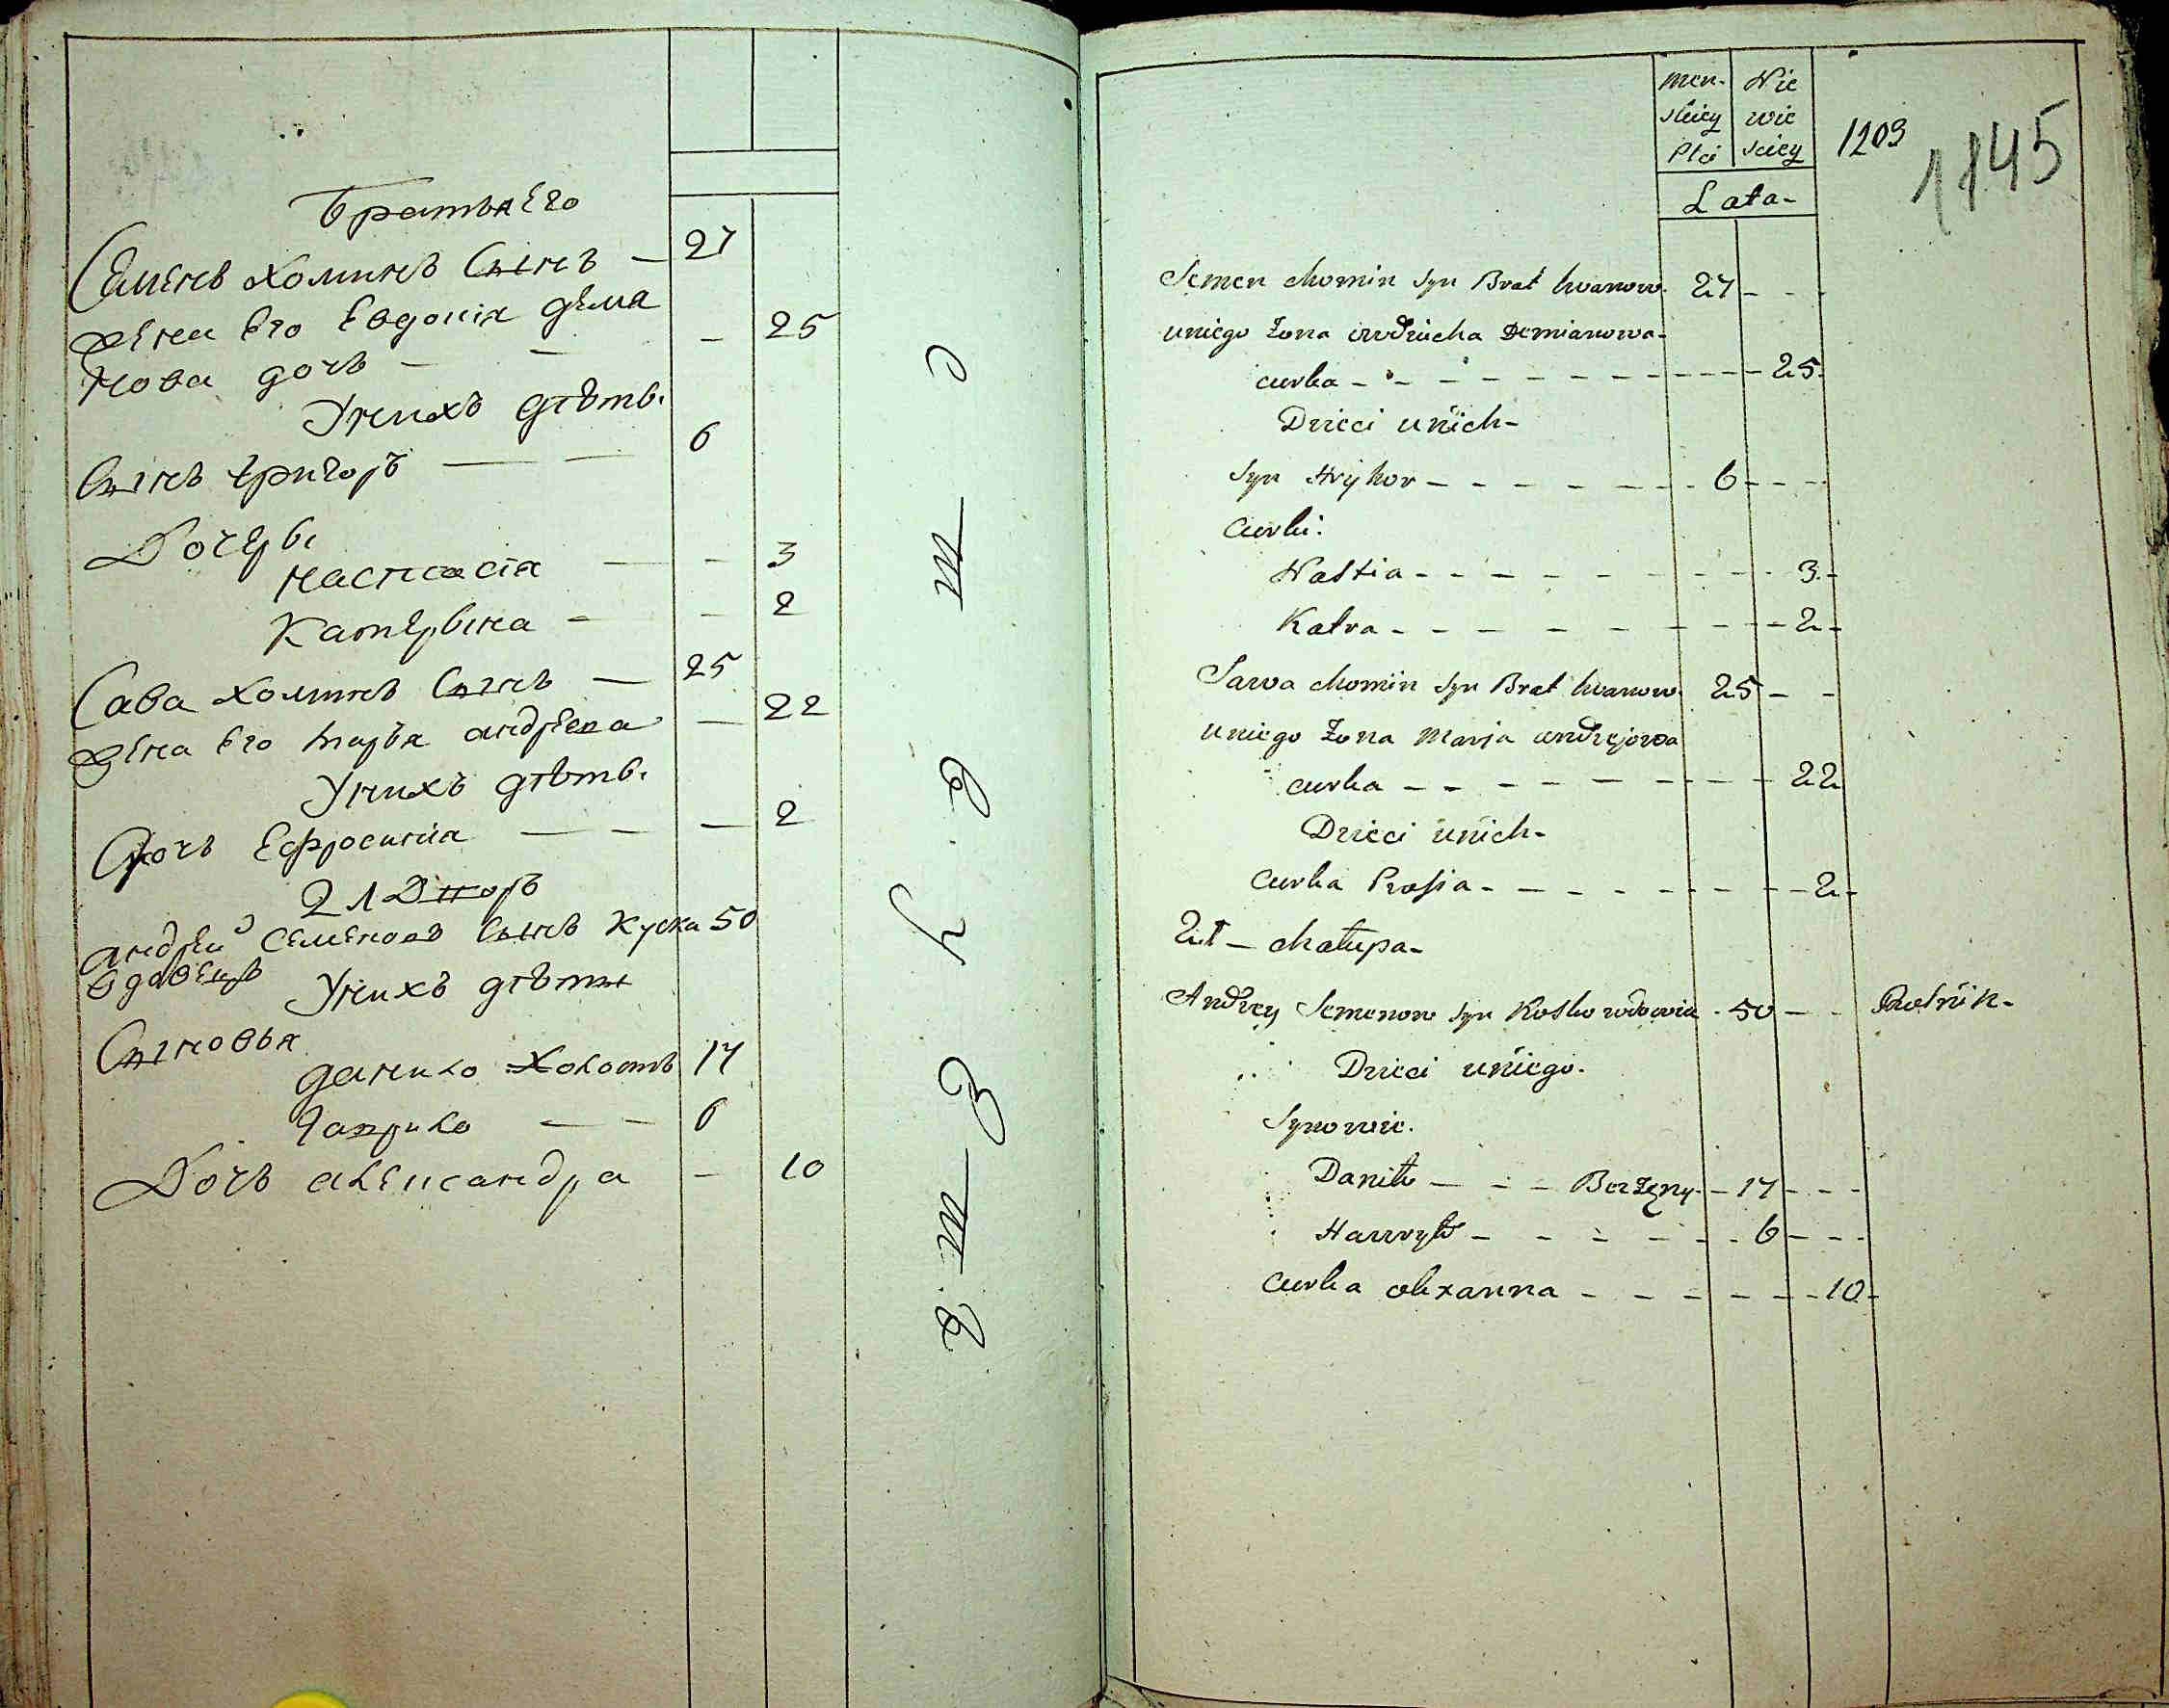 Братья Его
Семенъ Хоминъ Сынъ — 27
жена Его Евдокія Дема
нова дочь — — — 25
У нихъ дѣти.
Сынъ Григоръ — — 6
Дочери
Настасія — — 3
Катерына — — 2
Сава Хоминъ Сынъ — 25
жена Его Марья андреева — 22
У нихъ дѣти.
Дочь Ефросинія — — — 2
21 Дворъ
андрей Семеновъ Сынъ Куска 50
вдовецъ У нихъ дѣти
Сыновья
данило Холостъ 17
гаврило — — 6
Дочь александра — 10
men- Nie
skiey wie
Płci sciey
1209
1145
Lata-
Semen Chomin Syn Brat Iwanow 27 - - -
u niego Żona Awdziucha Demianowa-
curka - - - - - - - - - - 25.
Dzieci u nich-
Syn Hryhor - - - - - - - 6 - - -
Curki:
Nastia - - - - - - - - - 3.-
Katra - - - - - - - - - 2-
Sawa Chomin Syn Brat Iwanow 25 - -
u niego Żona Marja Andrejowa
curka - - - - - - - - - 22
Dzieci u nich-
Curka Prosia - - - - - - - - 2-
21 - Chałupa-
Andrey Semenow Syn Kosko wdowiec - 50 - - Rolnik-
Dzieci u niego.
Synowie.
Daniło - - - Beżżeny - 17 - - -
Hawryło - - - - - - 6 - - -
Curka Olexanna - - - - - - 10-